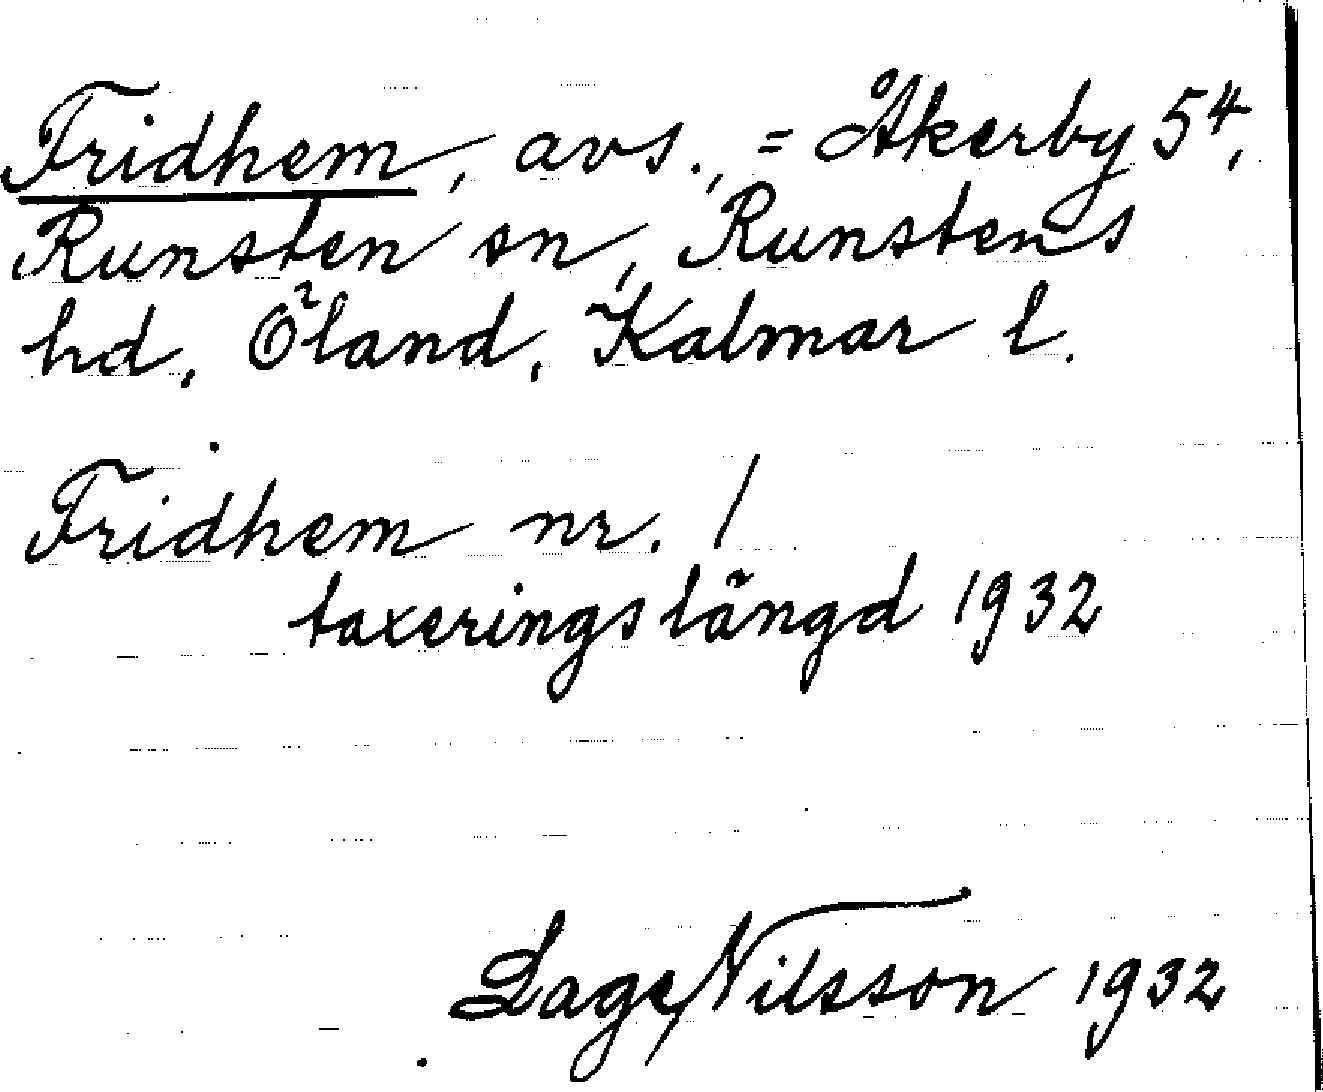 Fridhem, avs., = Åkerby 54,
Runsten sn, Runstens
hd, Öland, Kalmar l.
Fridhem nr. 1
taxeringslängd 1932
Lage Nilsson 1932